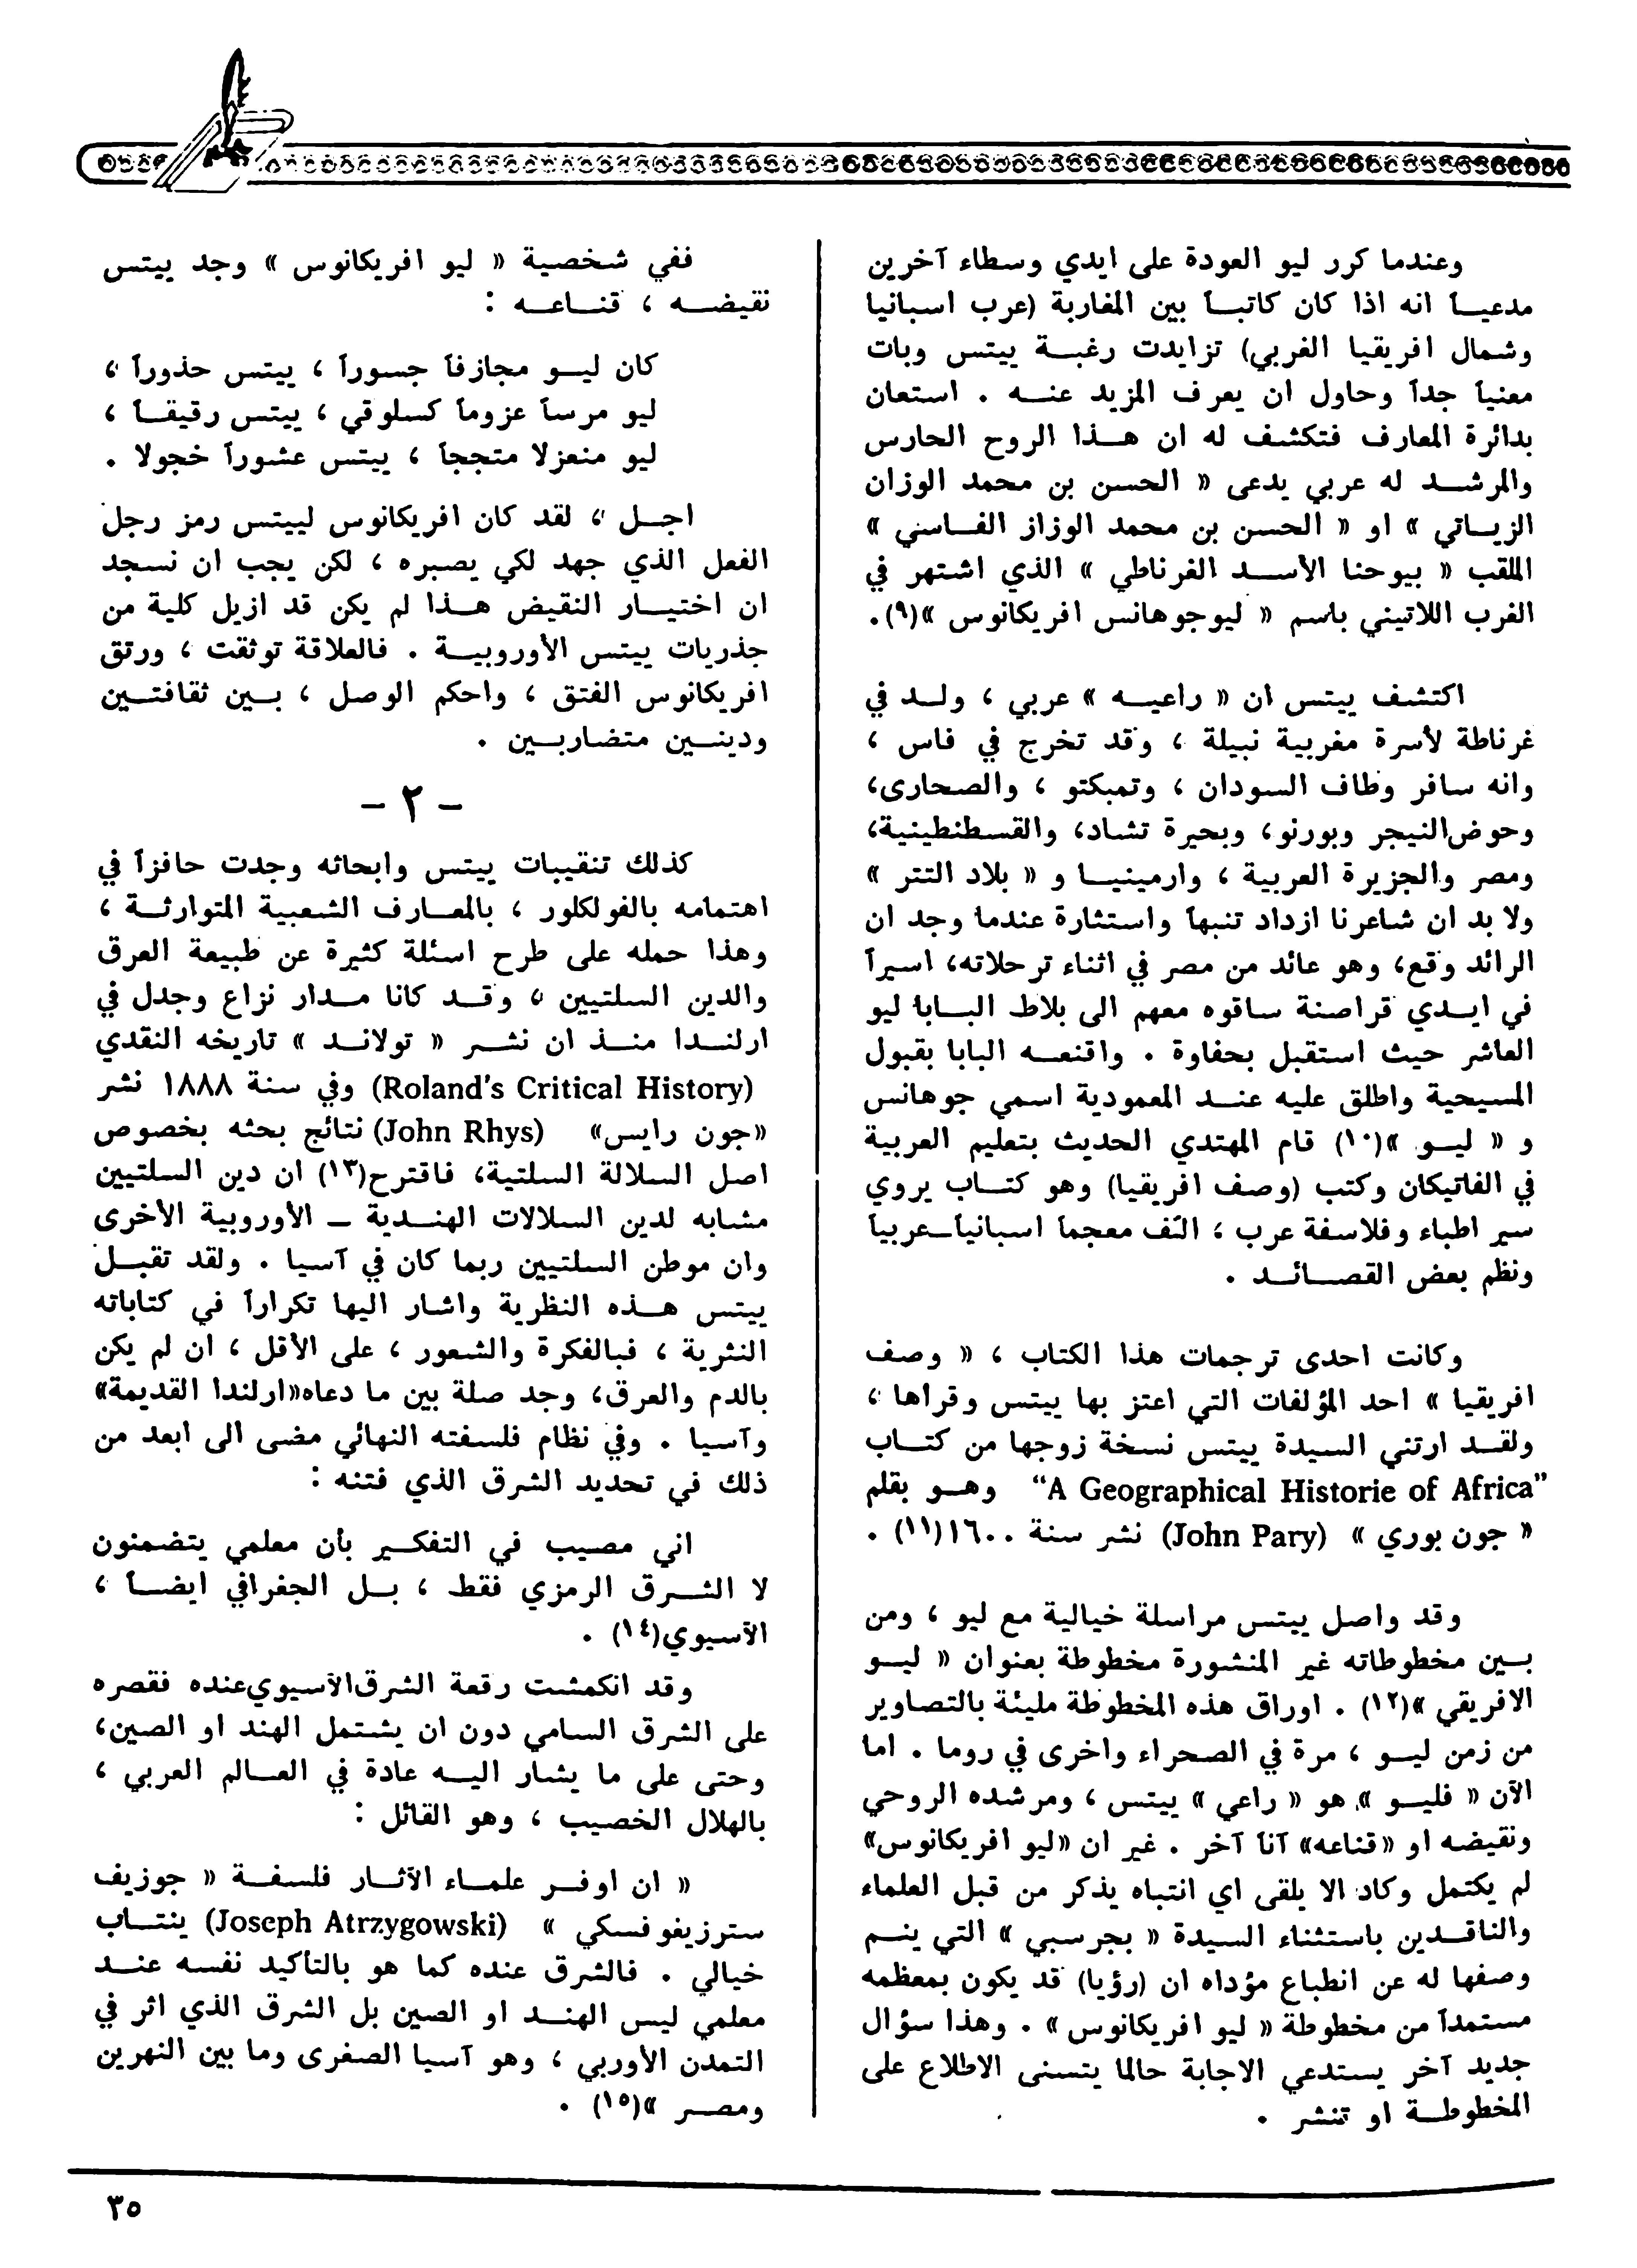 وعندما كرر ليو العودة على ايدي وسطاء آخرين
مدعيـا انه اذا كان كاتبـا بين المغاربة (عرب اسبانيا
وشمال افريقيا الغربي) تزايدت رغبـة ييتس وبات
معنياً جداً وحاول ان يعرف المزيد عنـه . استعان
بدائرة المعارف فتكشف له ان هـذا الروح الحارس
والمرشـد له عربي يدعى « الحسن بن محمد الوزان
الزيـاتي » او « الحسن بن محمد الوزاز الفـاسي »
الملقب « بيوحنا الأسـد الغرناطي » الذي اشتهر في
الغرب اللاتيني باسم « ليوجوهانس افريكانوس »(٩).
اكتشف ييتس ان « راعيـه » عربي ، ولـد في
غرناطة لأسرة مغربية نبيلة ، وقد تخرج في فاس ،
وانه سافر وطاف السودان ، وتمبكتو ، والصحارى،
وحوض النيجر وبورنو، وبحيرة تشاد، والقسطنطينية،
ومصر والجزيرة العربية ، وارمينيـا و « بلاد التتر »
ولا بد ان شاعرنا ازداد تنبهاً واستثارة عندما وجد ان
الرائد وقع، وهو عائد من مصر في اثناء ترحلاته، اسيراً
في ايـدي قراصنة ساقوه معهم الى بلاط البـابا ليو
العاشر حيث استقبل بحفاوة . واقنعـه البابا بقبول
المسيحية واطلق عليه عنـد المعمودية اسمي جوهانس
و « ليـو »(١٠) قام المهتدي الحديث بتعليم العربية
في الفاتيكان وكتب (وصف افريقيا) وهو كتـاب يروي
سير اطباء وفلاسفة عرب ، الّف معجماً اسبانياـعربياً
ونظم بعض القصـائـد .
وكانت احدى ترجمات هذا الكتاب ، « وصف
افريقيا » احد المؤلفات التي اعتز بها ييتس وقراها ،
ولقـد ارتني السيدة ييتس نسخة زوجها من كتـاب
"A Geographical Historie of Africa" وهـو بقلم
« جون بوري » (John Pary) نشر سنة ١٦٠٠(١١) .
وقد واصل ييتس مراسلة خيالية مع ليو ، ومن
بـين مخطوطاته غير المنشورة مخطوطة بعنوان « ليـو
الافريقي »(١٢) . اوراق هذه المخطوطة مليئة بالتصاوير
من زمن ليـو ، مرة في الصحراء واخرى في روما . اما
الآن « فليـو » هو « راعي » ييتس ، ومرشده الروحي
ونقيضه او « قناعه» آناً آخر . غير ان «ليو افريكانوس»
لم يكتمل وكاد الا يلقى اي انتباه يذكر من قبل العلماء
والناقـدين باستثناء السيدة « بجرسبي » التي ينـم
وصفها له عن انطباع مؤداه ان (رؤيا) قد يكون بمعظمه
مستمداً من مخطوطة « ليو افريكانوس» . وهذا سؤال
جديد آخر يستدعي الاجابة حالما يتسنى الاطلاع على
المخطوطـة او تنشر .
ففي شخصية « ليو افريكانوس » وجد ييتس
نقيضـه ، قنـاعـه :
كان ليـو مجازفاً جسوراً ، ييتس حذوراً ،
ليو مرساً عزوماً كسلوقي ، ييتس رقيقـاً ،
ليو منعزلا متججاً ، ييتس عشوراً خجولا .
اجـل ، لقد كان افريكانوس لييتس رمز رجل
الفعل الذي جهد لكي يصبره ، لكن يجب ان نسجد
ان اختيـار النقيض هـذا لم يكن قد ازيل كلية من
جذريات ييتس الأوروبيـة . فالعلاقة توثقت ، ورتق
افريكانوس الفتق ، واحكم الوصل ، بـين ثقافتـين
ودينـين متضاربـين .
– ٢ –
كذلك تنقيبات ييتس وابحاثه وجدت حافزاً في
اهتمامه بالفولكلور ، بالمعـارف الشعبية المتوارثـة ،
وهذا حمله على طرح اسئلة كثيرة عن طبيعة العرق
والدين السلتيين ، وقـد كانا مـدار نزاع وجدل في
ارلنـدا منـذ ان نشـر « تولانـد » تاريخه النقدي
(Roland's Critical History) وفي سنة ١٨٨٨ نشر
«جون رايس» (John Rhys) نتائج بحثه بخصوص
اصل السلالة السلتية، فاقترح(١٣) ان دين السلتيين
مشابه لدين السلالات الهنـدية ـ الأوروبية الأخرى
وان موطن السلتيين ربما كان في آسيا . ولقد تقبـل
ييتس هـذه النظرية واشار اليها تكراراً في كتاباته
النثرية ، فبالفكرة والشعور ، على الأقل ، ان لم يكن
بالدم والعرق، وجد صلة بين ما دعاه«ارلندا القديمة»
وآسيا . وفي نظام فلسفته النهائي مضى الى ابعد من
ذلك في تحديد الشرق الذي فتنه :
اني مصيب في التفكـير بأن معلمي يتضمنون
لا الشـرق الرمزي فقط ، بـل الجغرافي ايضـاً ،
الآسيوي(١٤) .
وقد انكمشت رقعة الشرق الآسيوي عنده فقصره
على الشرق السامي دون ان يشتمل الهند او الصين،
وحتى على ما يشار اليـه عادة في العـالم العربي ،
بالهلال الخصيب ، وهو القائل :
« ان اوفـر علمـاء الآثـار فلسفـة « جوزيف
سترزيغوفسكي » (Joseph Atrzygowski) ينتـاب
خيالي . فالشرق عنده كما هو بالتأكيد نفسه عنـد
معلمي ليس الهنـد او الصين بل الشرق الذي اثر في
التمدن الأوربي ، وهو آسيا الصغرى وما بين النهرين
ومصـر »(١٥) .
٣٥